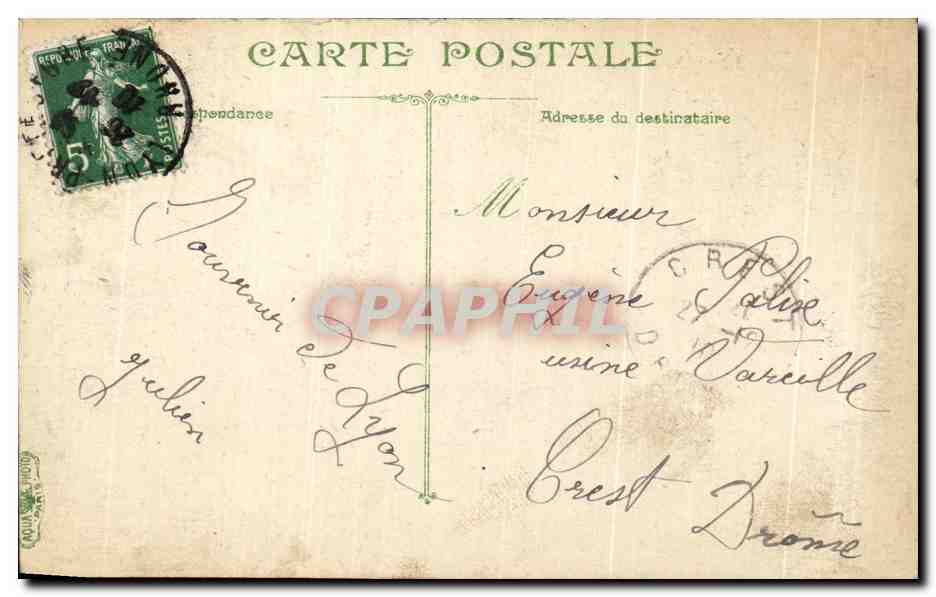 CARTE POSTALE
REPUBLIQUE FRANÇAISE
5
POSTES
LYON
RHONE
Adresse du destinataire
Souvenir
de
Lyon
Julien
Monsieur
Eugène Palixe
usine Vareille
Crest Drôme
CREST
CPAPHIL
AQUA PHOTO
PARIS